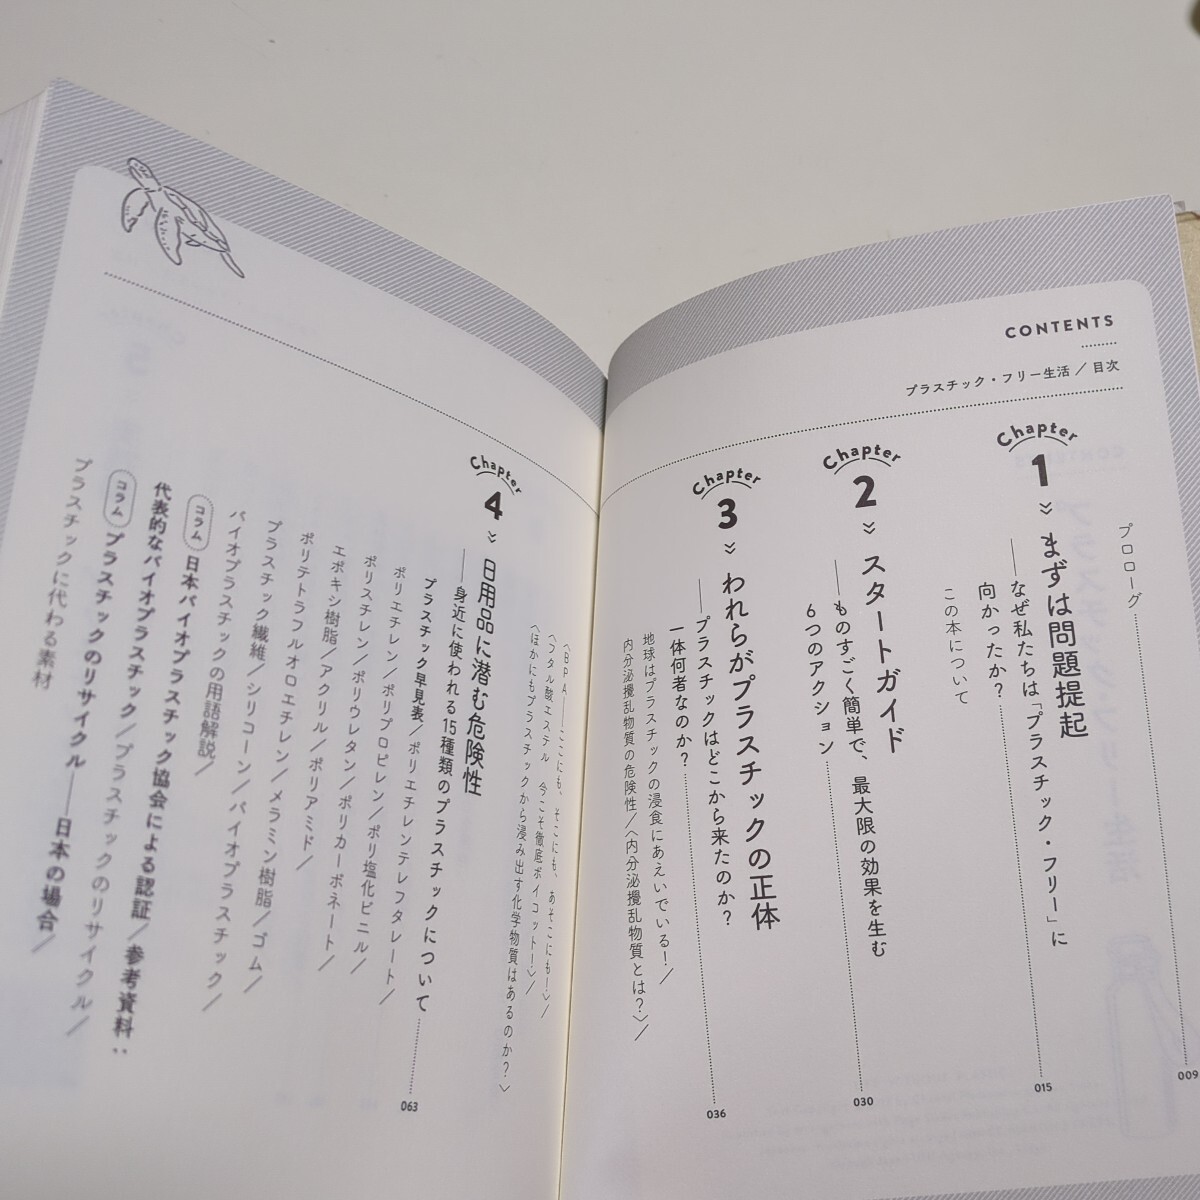 CONTENTS
プラスチック・フリー生活／目次
プロローグ
009
Chapter
1
まずは問題提起
──なぜ私たちは「プラスチック・フリー」に
向かったか?
015
この本について
Chapter
2
スタートガイド
──ものすごく簡単で、最大限の効果を生む
6つのアクション
030
Chapter
3
われらがプラスチックの正体
──プラスチックはどこから来たのか?
一体何者なのか?
036
地球はプラスチックの浸食にあえいでいる!／
内分泌攪乱物質の危険性／〈内分泌攪乱物質とは?〉／
〈BPA──ここにも、そこにも、あそこにも!〉／
〈フタル酸エステル　今こそ徹底ボイコット!〉／
〈ほかにもプラスチックから浸み出す化学物質はあるのか?〉
Chapter
4
日用品に潜む危険性
──身近に使われる15種類のプラスチックについて
063
プラスチック早見表／ポリエチレンテレフタレート／
ポリエチレン／ポリプロピレン／ポリ塩化ビニル／
ポリスチレン／ポリウレタン／ポリカーボネート／
エポキシ樹脂／アクリル／ポリアミド／
ポリテトラフルオロエチレン／メラミン樹脂／ゴム／
プラスチック繊維／シリコーン／バイオプラスチック／
バイオプラスチックの用語解説／
コラム 日本バイオプラスチック協会による認証／参考資料:
代表的なバイオプラスチック／プラスチックのリサイクル／
コラム プラスチックのリサイクル──日本の場合／
プラスチックに代わる素材